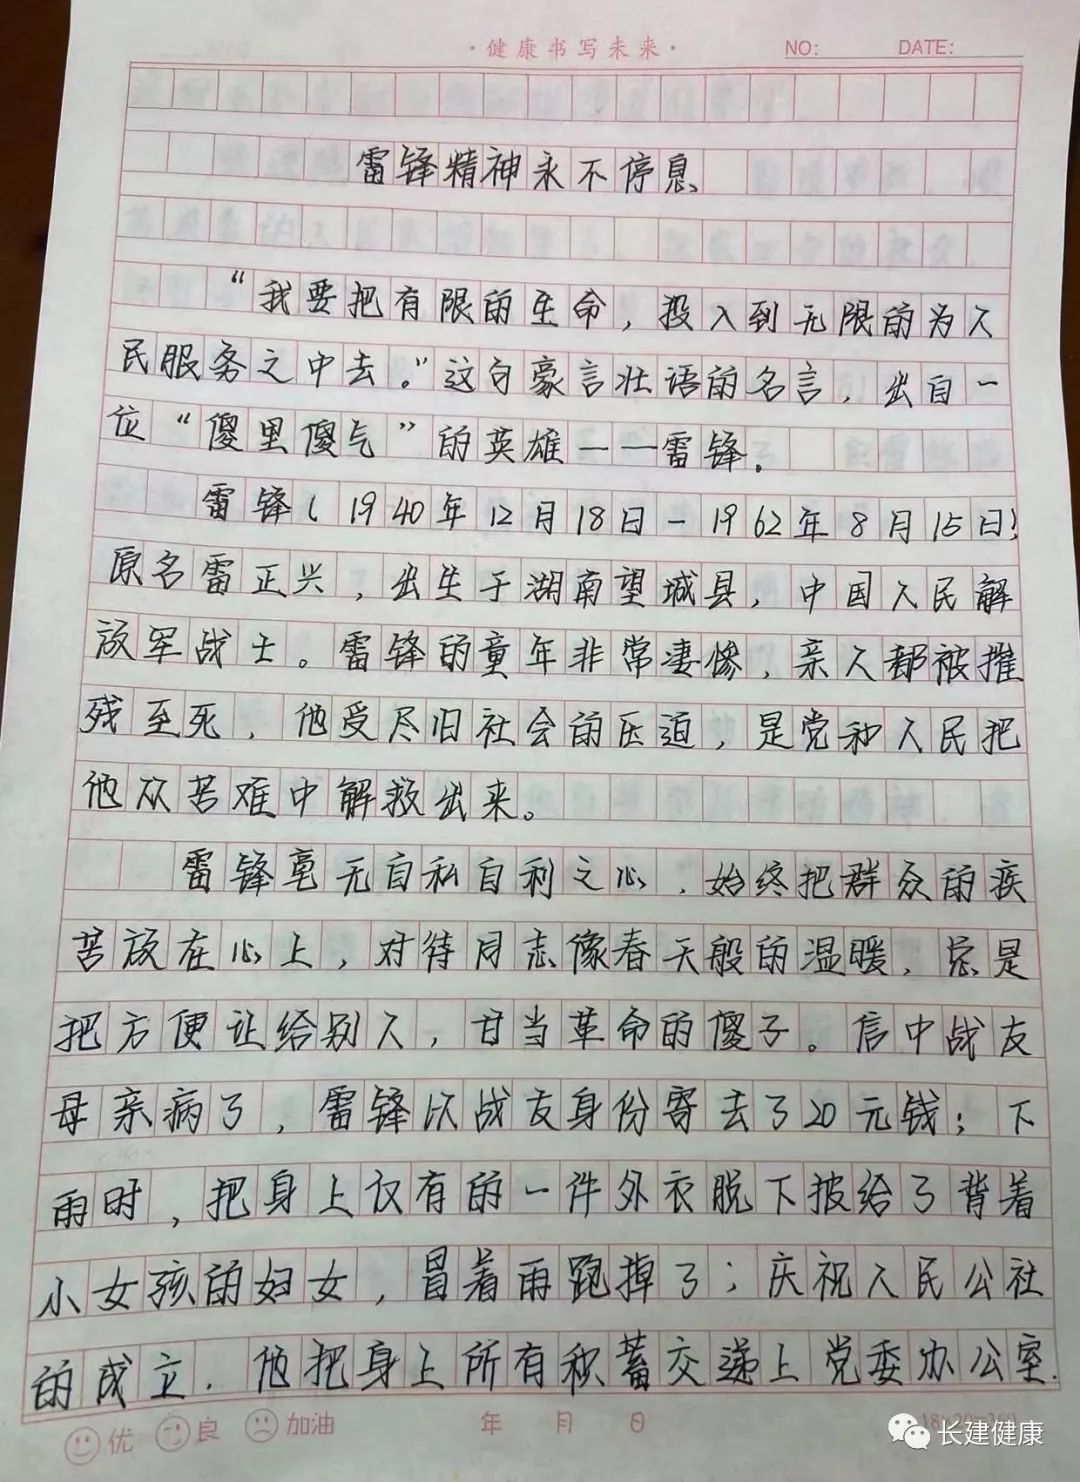 ·健康书写未来·
NO: DATE:
雷锋精神永不停息
“我要把有限的生命，投入到无限的为人
民服务之中去。”这句豪言壮语的名言，出自一
位“傻里傻气”的英雄——雷锋。
雷锋（1940年12月18日－1962年8月15日）
原名雷正兴，出生于湖南望城县，中国人民解
放军战士。雷锋的童年非常凄惨，亲人都被摧
残至死，他受尽旧社会的压迫，是党和人民把
他从苦难中解救出来。
雷锋毫无自私自利之心，始终把群众的疾
苦放在心上，对待同志像春天般的温暖，总是
把方便让给别人，甘当革命的傻子。信中战友
母亲病了，雷锋以战友身份寄去了20元钱；下
雨时，把身上仅有的一件外衣脱下披给了背着
小女孩的妇女，冒着雨跑掉了；庆祝人民公社
的成立，他把身上所有积蓄交递上党委办公室.
优 良 加油 年 月 日
长建健康